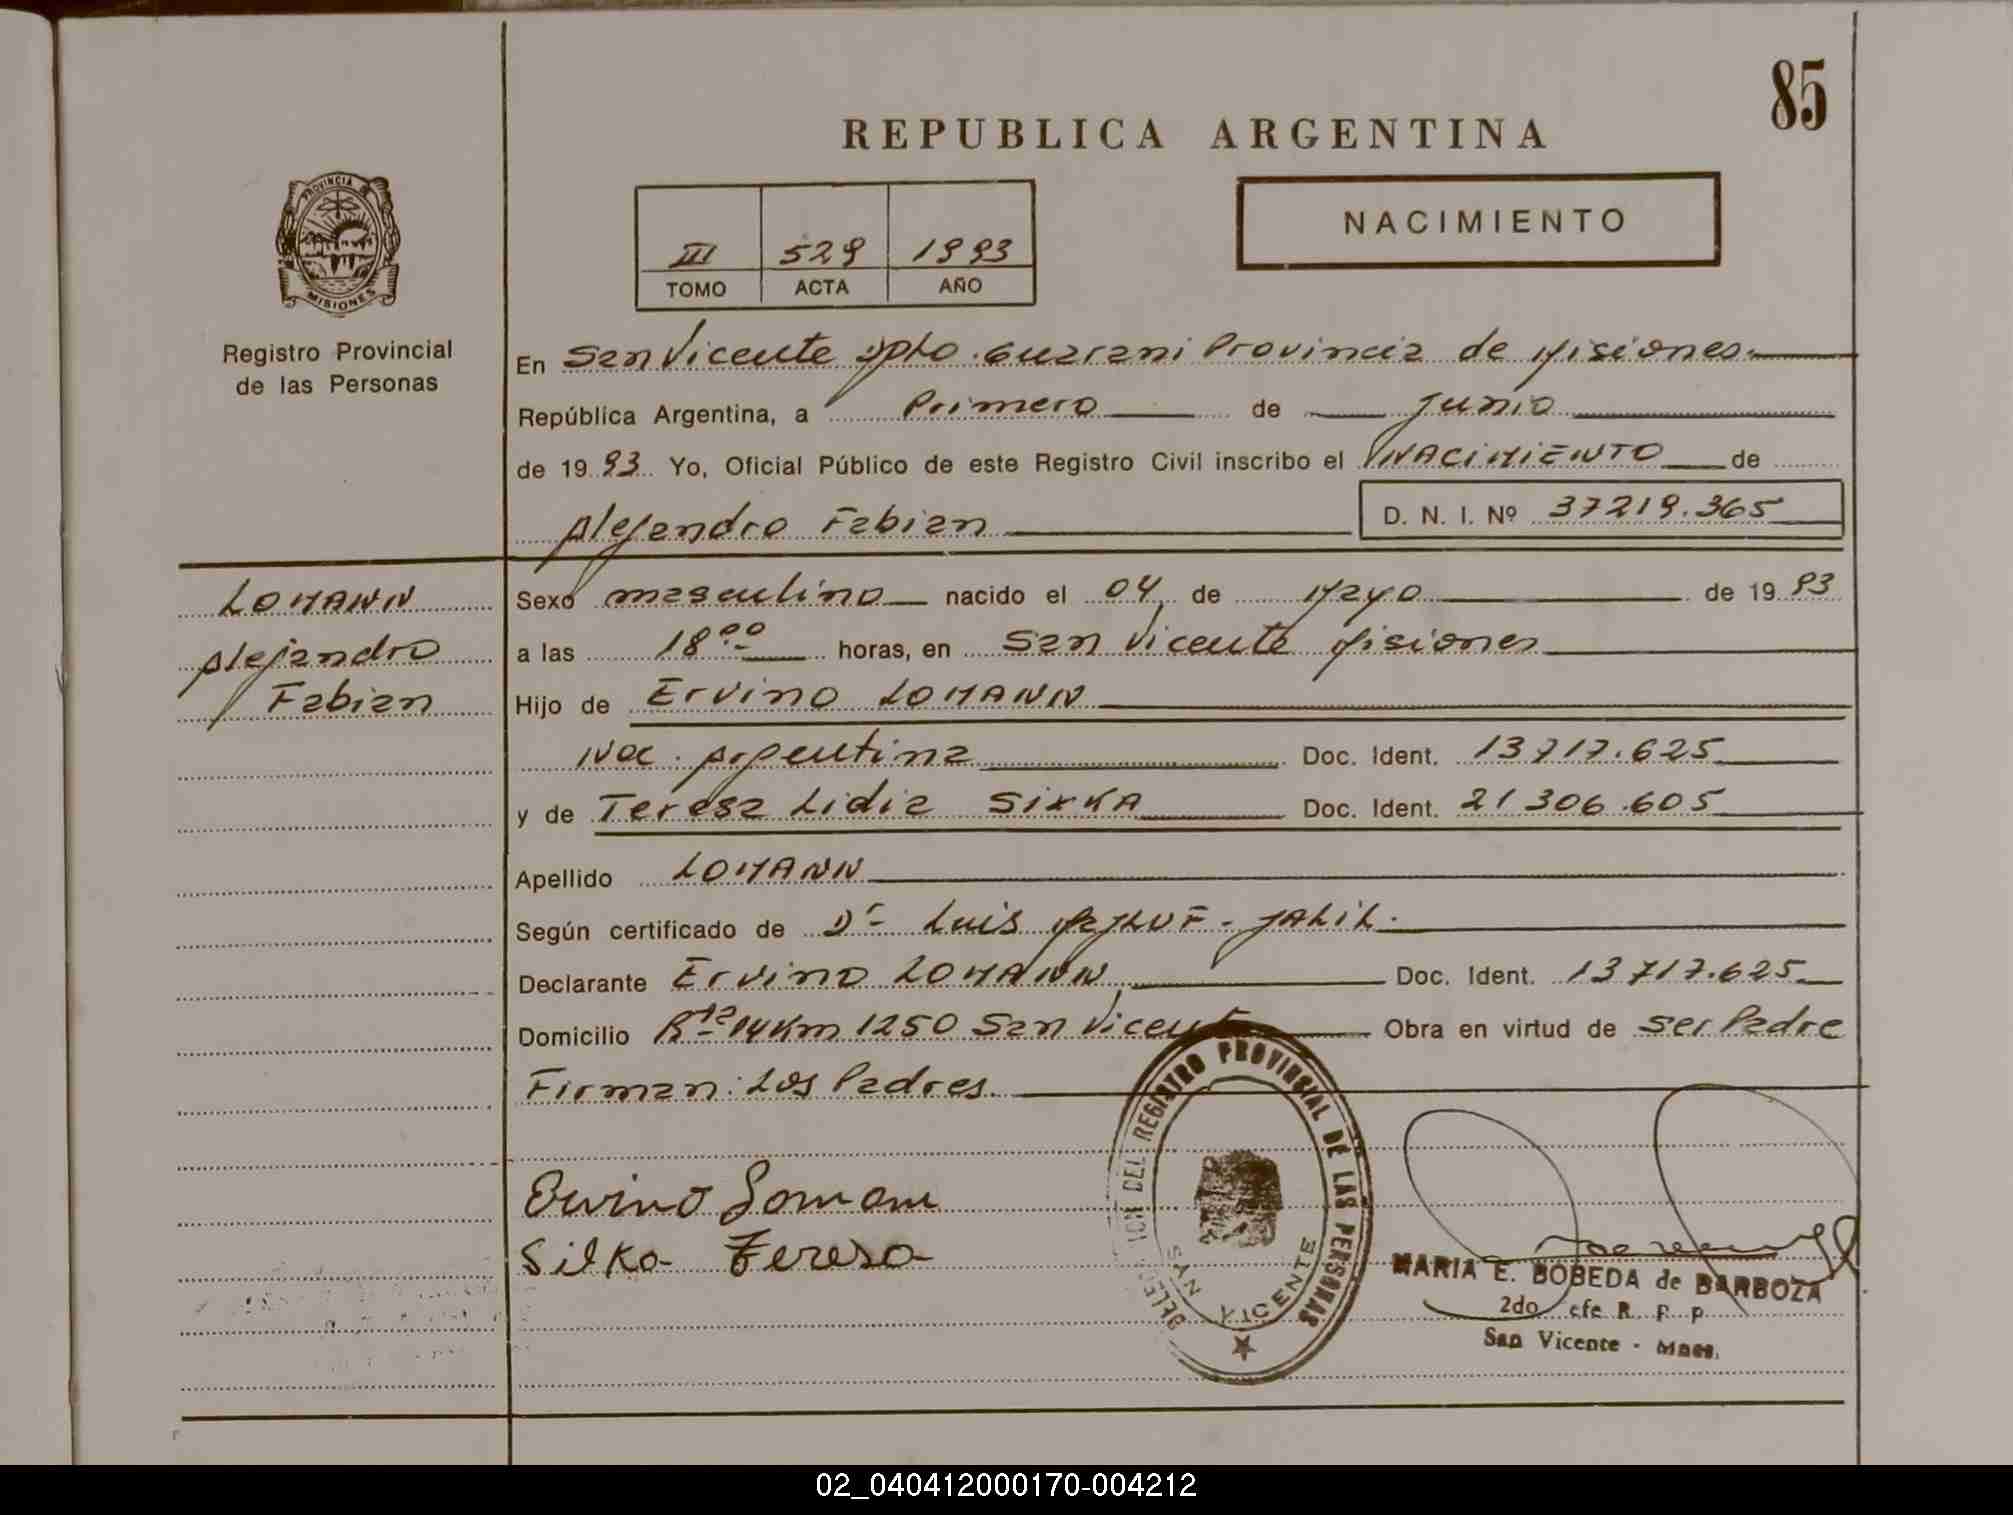 85
REPUBLICA ARGENTINA
PROVINCIA DE
MISIONES
Registro Provincial
de las Personas
III 529 1993
TOMO ACTA AÑO
NACIMIENTO
En San Vicente Dpto. Guarani Provincia de Misiones.
República Argentina, a Primero de Junio
de 1993 Yo, Oficial Público de este Registro Civil inscribo el NACIMIENTO de
Alejandro Fabian D. N. I. Nº 37219.365
LOMANN
Alejandro
Fabian
Sexo masculino nacido el 04 de Mayo de 1993
a las 18ºº horas, en San Vicente Misiones
Hijo de Ervino LOMANN
Nac. Argentina Doc. Ident. 13717.625
y de Teresa Lidia SixKA Doc. Ident. 21306.605
Apellido LOMANN
Según certificado de Dr Luis JALIL.
Declarante Ervino LOMANN Doc. Ident. 13717.625
Domicilio Rta 14 Km 1250 San Vicente Obra en virtud de ser Padre
Firman: Los Padres.
Ervino Lomann
Silka Teresa
DEL REGISTRO PROVINCIAL DE LAS PERSONAS
SAN VICENTE
MARIA E. BOBEDA de BARBOZA
2do efe R. P. P
San Vicente - Mnes.
02_040412000170-004212